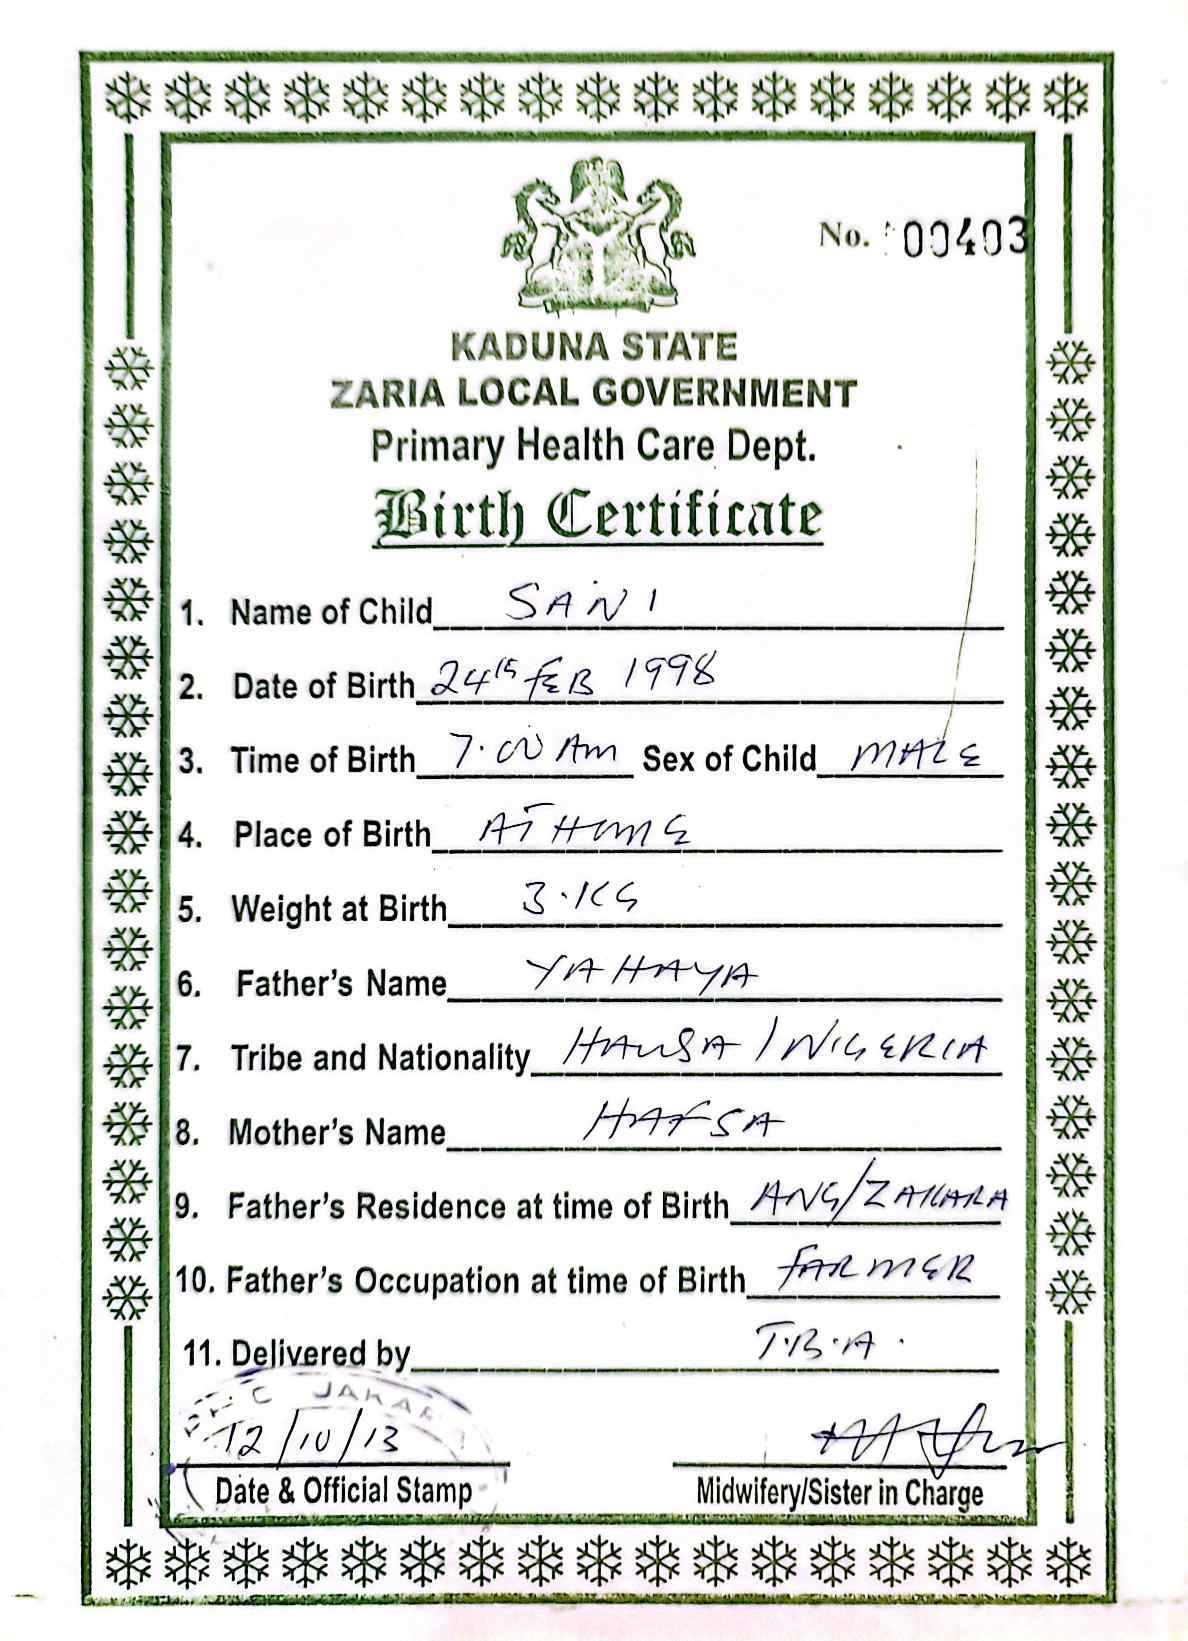 No. 00403
KADUNA STATE
ZARIA LOCAL GOVERNMENT
Primary Health Care Dept.
Birth Certificate
1. Name of Child SANI
2. Date of Birth 24th FEB 1998
3. Time of Birth 7.00 Am Sex of Child MALE
4. Place of Birth AT HOME
5. Weight at Birth 3.KG
6. Father's Name YAHAYA
7. Tribe and Nationality HAUSA / NIGERIA
8. Mother's Name HAFSA
9. Father's Residence at time of Birth ANG/ZAKARA
10. Father's Occupation at time of Birth FARMER
11. Delivered by T.B.A.
12/10/13
Date & Official Stamp
Midwifery/Sister in Charge